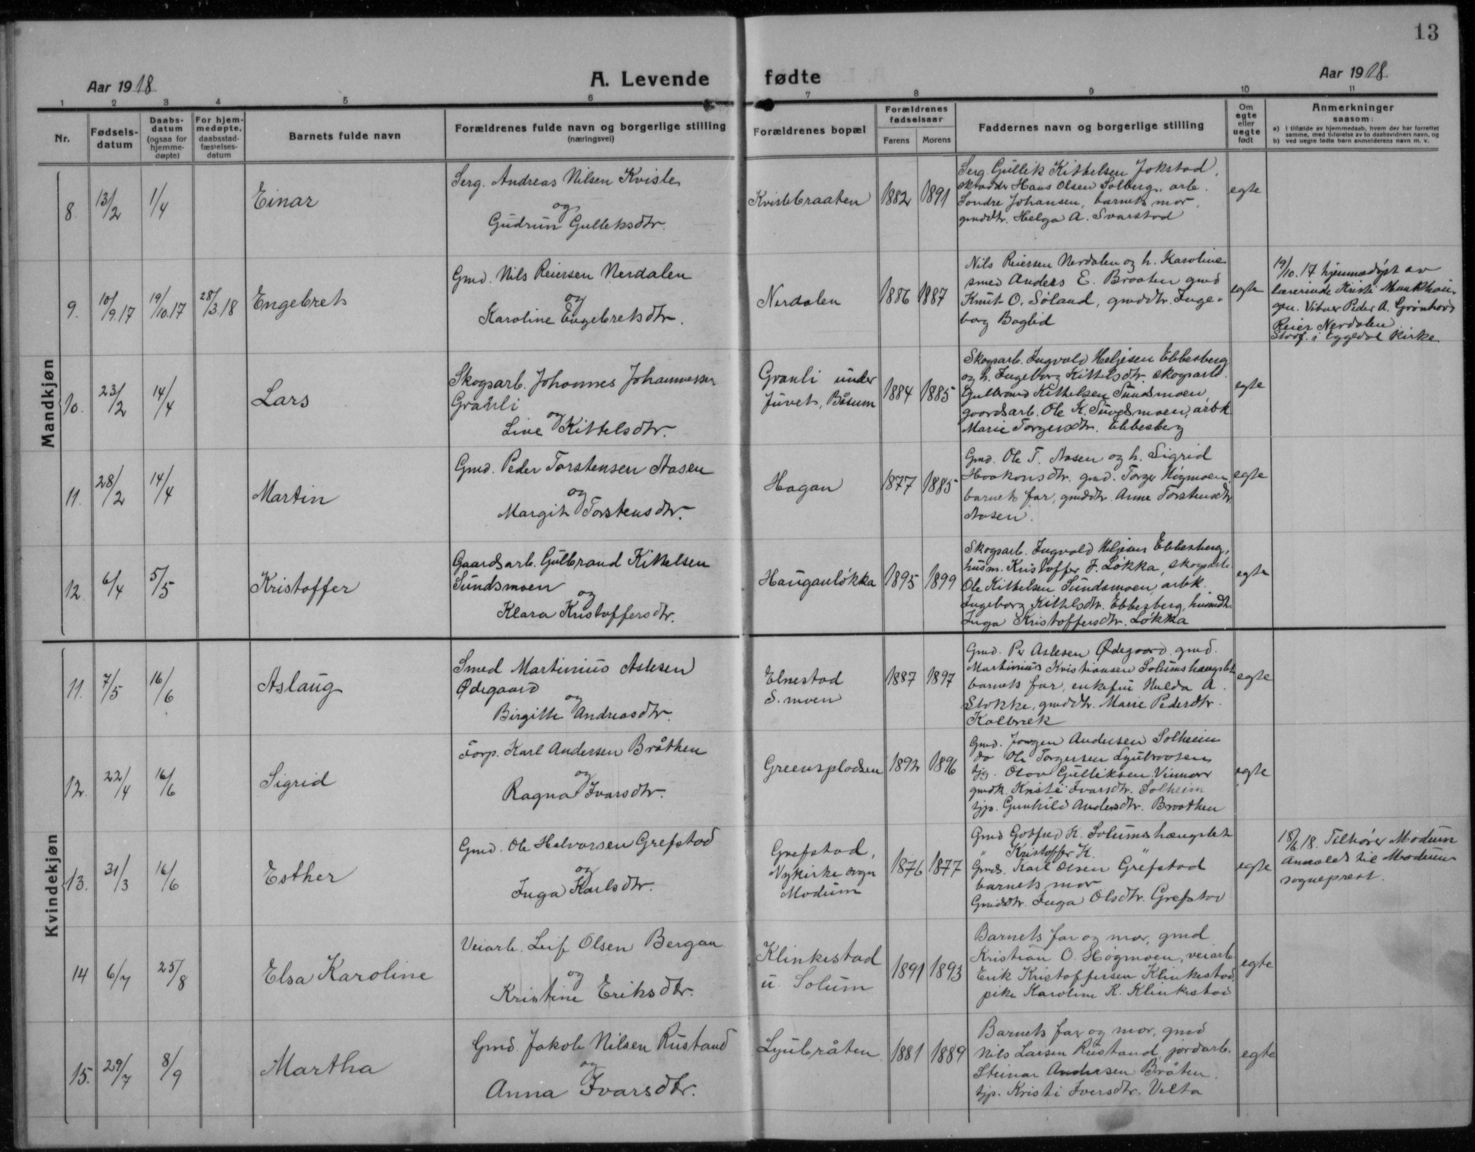 13
Aar 1918.
A. Levende fødte
Aar 1918.
1 2 3 4 5 6 7 8 9 10 11
Nr.
Fødsels-
datum
Daabs-
datum
(ogsaa for
hjemme-
døpte)
For hjem-
medøpte,
daabsstad-
fæstelses-
datum
Barnets fulde navn
Forældrenes fulde navn og borgerlige stilling
(næringsvei)
Forældrenes bopæl
Forældrenes
fødselsaar
Farens Morens
Faddernes navn og borgerlig stilling
Om
egte
eller
uegte
født
Anmerkninger
saasom:
a) i tilfælde av hjemmedaab, hvem der har forrettet
samme, med tilføielse av to daabsvidners navn, og
b) ved uegte fødte børn anmelderens navn m. v.
Mandkjøn
8. 13/2 1/4 Einar
Serg. Andreas Nilsen Kviste
og
Gudrun Gulleksdtr.
Kvistebraaten 1882 1891
Serg Gullik Kittelsen Jokstad,
skrædder Hans Olsen Solberg, arb.
Sondre Johansen, barnets mor,
gmddtr. Helga A. Svarstad
egte
9. 10/9 17 19/10.17 28/3.18 Engebret
Gmd. Nils Reiersen Nerdalen
og
Karoline Engebretsdtr.
Nerdalen 1886 1887
Nils Reiersen Nerdalen og h. Karoline
smed Anders E. Braaten gmd
Knut O. Søland, gmddtr. Inge-
borg Baglid
egte
19/10.17 hjemmedøpt av
lærerinde Kristi
Vitner Peder A. Grønhovd
Reier Nerdalen
Stadf. i Eggedal Kirke.
10. 23/2 14/4 Lars
Skogsarb. Johannes Johannessen
Granli
og
Live Kittelsdtr.
Granli under
Juvet, Bøsum 1884 1885
Skogsarb. Ingvald Helgesen Ebbesberg
og h. Ingeborg Kittelsdtr. skogsarb.
Gulbrand Kittelsen Sundsmoen
gaardsarb. Ole K. Sundsmoen, arbk
Marie Torgersdtr. Ebbesberg
egte
11. 28/2 14/4 Martin
Gmd. Peder Torstensen Aasen
og
Margit Torstensdtr.
Hagan 1877 1885
Gmd. Ole T. Aasen og h. Sigrid
Haakonsdtr. gmd. Torger Høgmoen
barnets far, gmddtr. Anne Torstensdtr
Aasen.
egte
12 6/4 5/5 Kristoffer
Gaardsarb. Gulbrand Kittelsen
Sundsmoen
og
Klara Kristoffersdtr.
Hauganløkka 1895 1899
Skogsarb. Ingvald Helgesen Ebbesberg,
husm. Kristoffer J. Løkka, skogsarb.
Ole Kittelsen Sundsmoen, arbk.
Ingeborg Kittelsdtr. Ebbesberg, husmdtr.
Inga Kristoffersdtr. Løkka
egte
Kvindekjøn
11. 7/5 16/6 Aslaug
Smed Martinius Aslesen
Ødegaard
og
Birgitte Andreasdtr.
Elnestad
S. moen 1887 1897
Gmd. Per Aslesen Ødegaard, gmd.
Martinius Kristiansen Solumshængslet
barnets far, enkefru Hulda A.
Stokke, gmddtr. Marie Pedersdtr.
Kolbræk
egte
12. 22/4 16/6 Sigrid
Forp. Karl Andersen Bråthen
og
Ragna Ivarsdtr.
Greensplodsen 1892 1896
Gmd. Jørgen Andersen Solheim
do Ole Torgersen Ljubraaten
tjg. Olav Gulliksen
gmdk. Kristi Ivarsdtr. Solheim
tjp. Gunhild Andersdtr. Braathen
egte
13. 31/3 16/6 Esther
Gmd. Ole Halvorsen Grefstad
og
Inga Karlsdtr.
Grefstad,
Nykirke sogn
Modum 1876 1877
Gmd Gotfred K. Solumshængslet
" Kristoffer K. "
Gmds. Karl Olsen Grefstad
barnets mor
Gmddtr. Inga Olsdtr. Grefstad
egte
18/6 18. Tilhører Modum
Anmeldt til Modum
sogneprest.
14 6/7 25/8 Elsa Karoline
Veiarb. Leif Olsen Bergan
og
Kristine Eriksdtr.
Klinkestad
u. Solum 1891 1893
Barnets far og mor, gmd
Kristian O. Høgmoen, veiarb
Erik Kristoffersen Klinkestad,
pike Karoline K. Klinkestad
egte
15. 29/7 8/9 Martha
Gmd Jakob Nilsen Rustand
og
Anna Ivarsdtr.
Ljubråten 1881 1889
Barnets far og mor, gmd
Nils Larsen Rustand, jordarb.
Steinar Andersen Bråten.
tjp. Kristi Iversdtr. Velta
egte